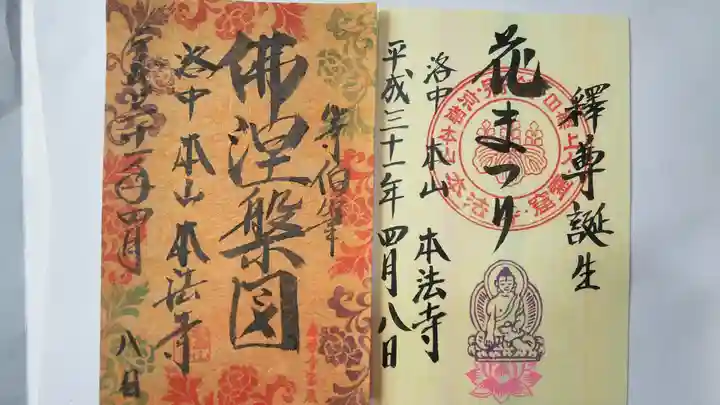 釋尊誕生
花まつり
洛中 本山 本法寺
平成三十一年四月八日
等伯筆
佛涅槃図
洛中 本山 本法寺
四月八日